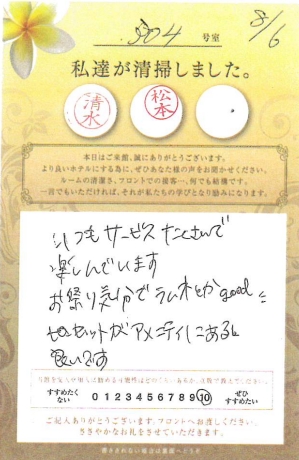 504 号室 8/6
私達が清掃しました。
清水 松本
本日はご来館、誠にありがとうございます。
より良いホテルにする為に、ぜひあなた様の声をお聞かせください。
ルームの清潔さ、フロントでの接客…何でも結構です。
一言でもいただければ、それが私たちの学びとなり励みになります。
いつもサービスたくさんで
楽しんでいます
お祭り気分でラムネとか good
セットがアメニティにあると
良いです
すすめたくない 0 1 2 3 4 5 6 7 8 9 10 ぜひすすめたい
ご記入ありがとうございます。フロントへお渡しください。
ささやかなお礼をさせていただきます。